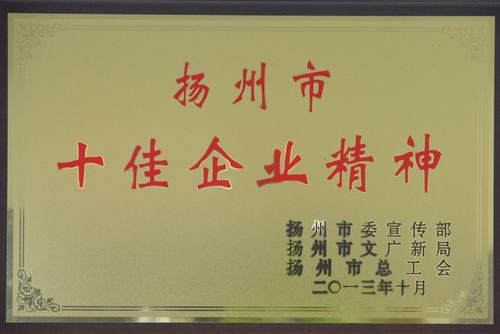 扬州市
十佳企业精神
扬州市委宣传部
扬州市文广新局
扬州市总工会
二〇一三年十月